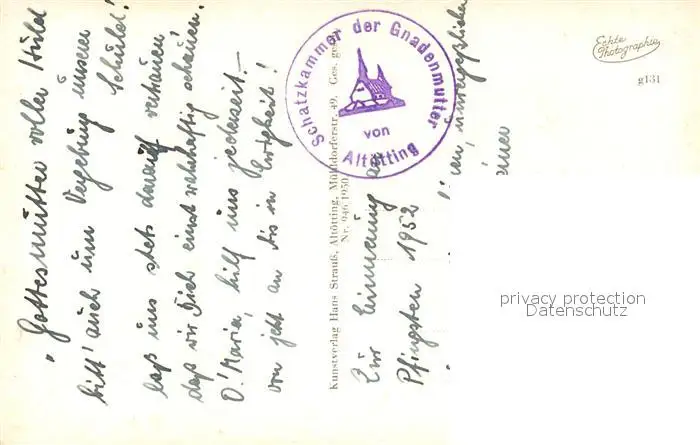 "Gottesmutter voller Huld
bitt' auch um Vergebung unserer Schuld!
laß uns stets darauf vertrauen
daß wir Dich einst wahrhaftig schauen.
O! Maria, hilf uns jederzeit.-
von jetzt an bis in Ewigkeit!
Schatzkammer der Gnadenmutter
von
Altötting
Kunstverlag Hans Strauß, Altötting, Mühldorferstr. 49. Ges. gesch.
Nr. 946/1950
Zur Erinnerung an
Pfingsten 1952
Echte
Photographie
g131
privacy protection
Datenschutz